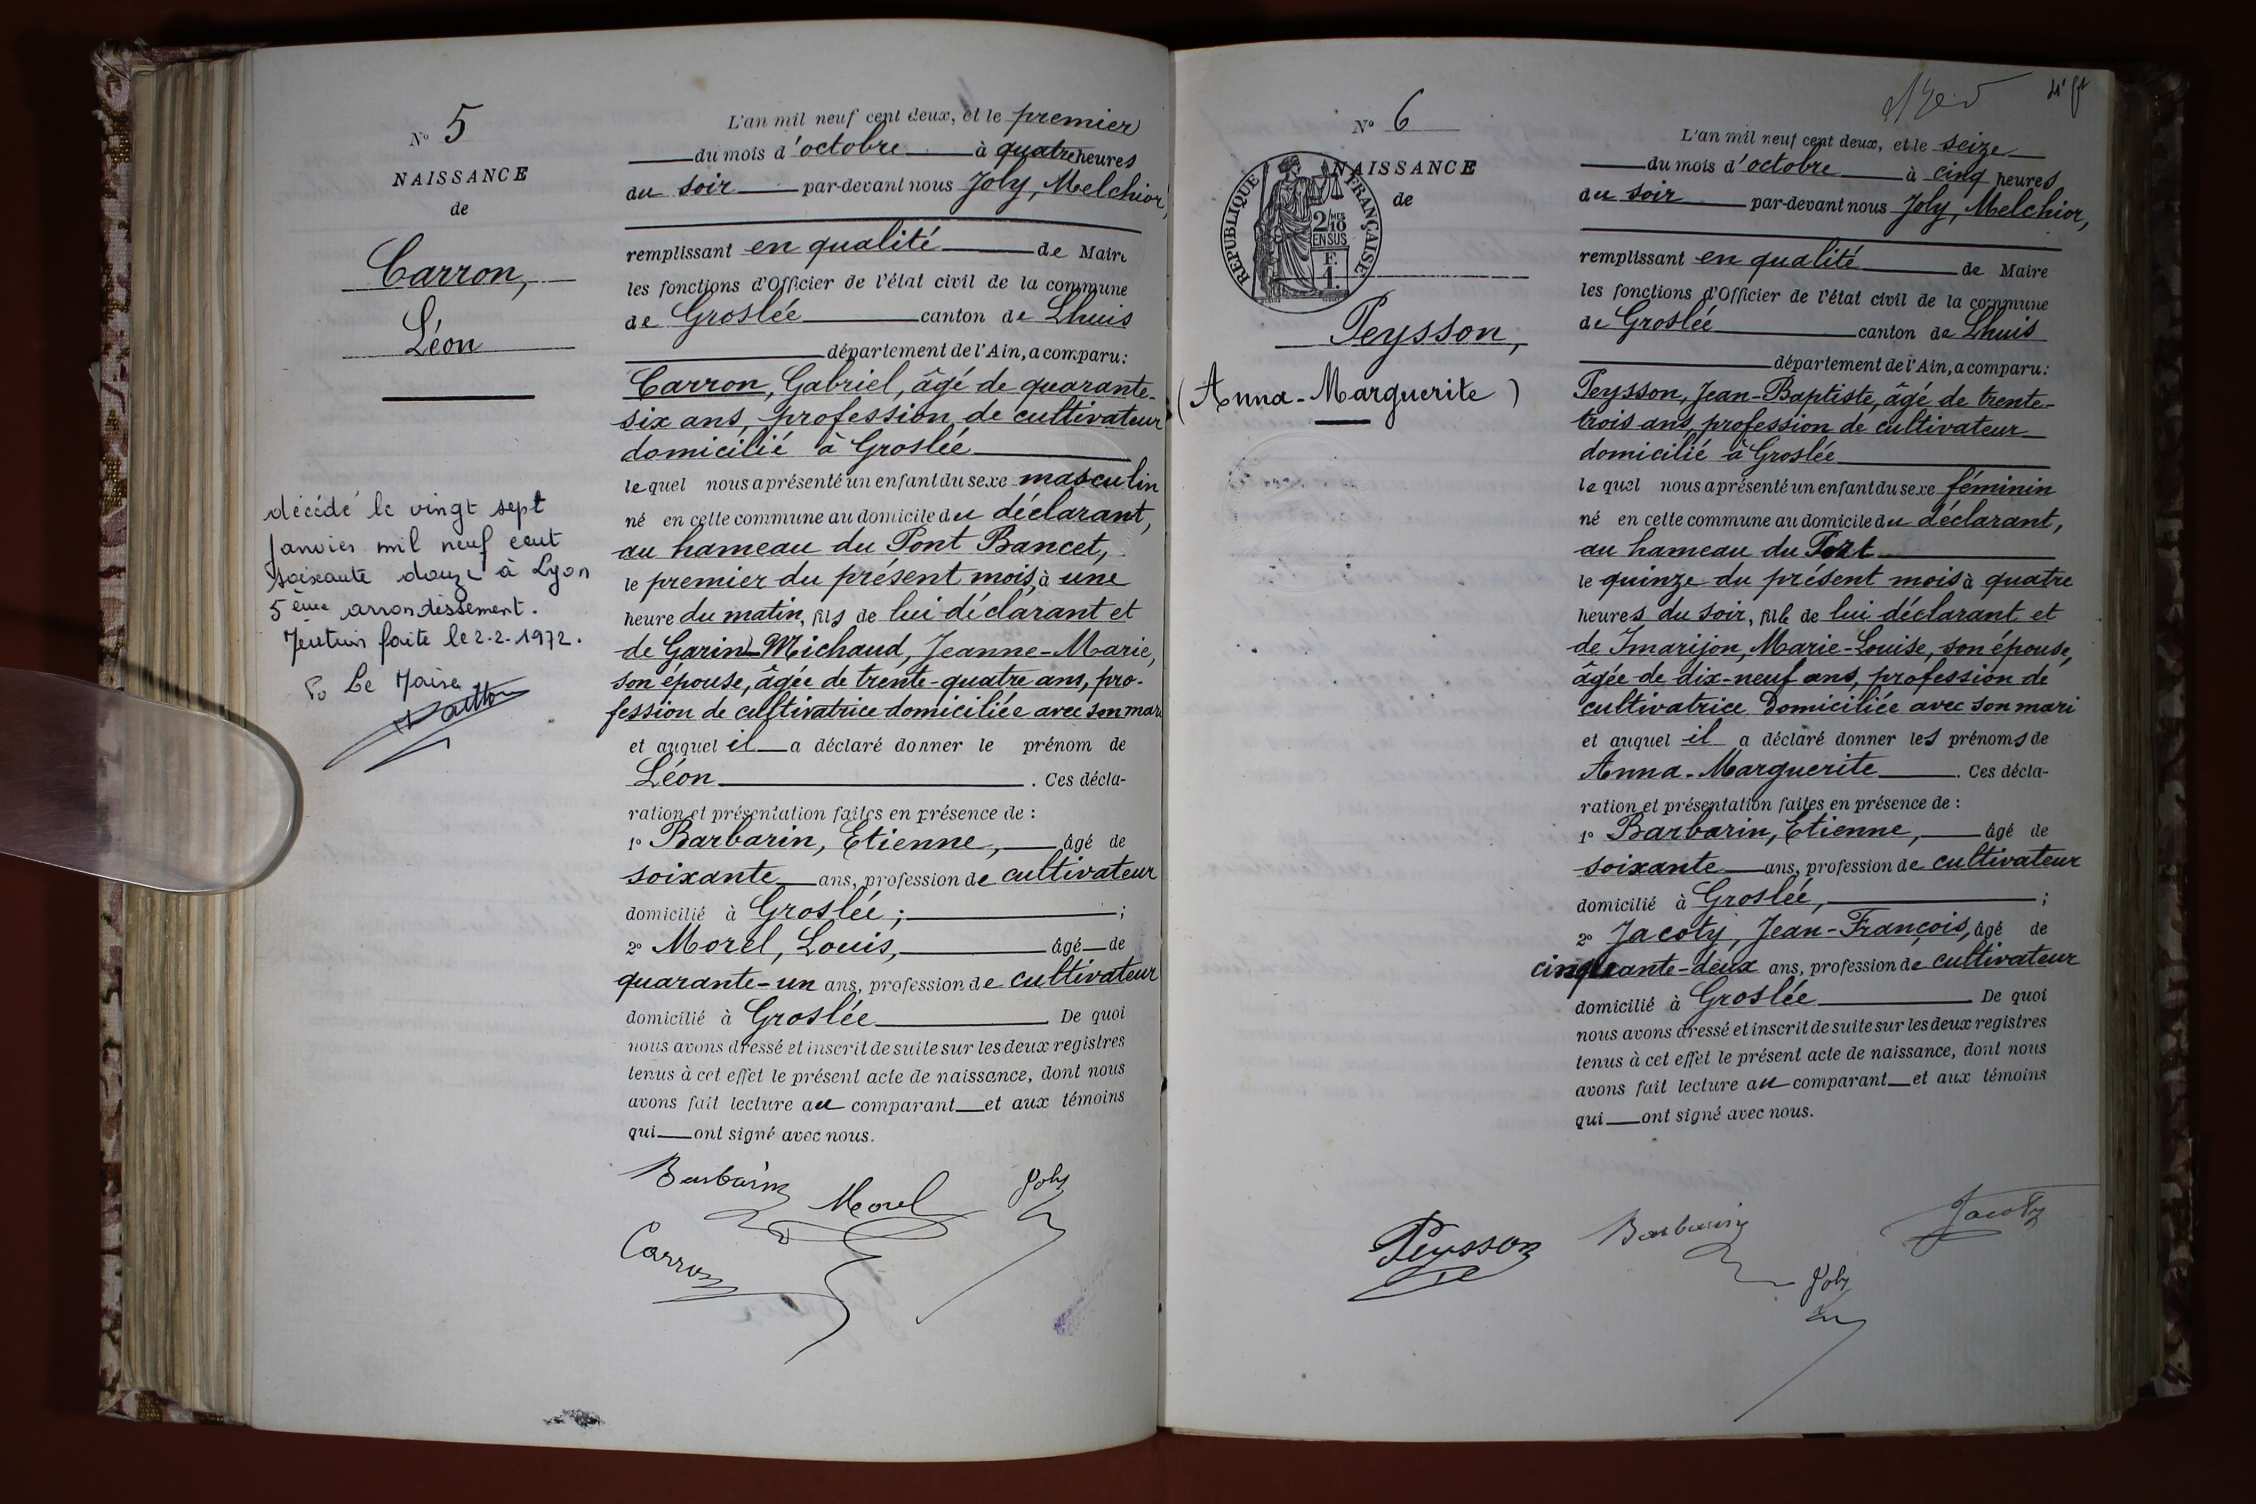 No 5
NAISSANCE
de
Carron,
Léon
décédé le vingt sept
Janvier mil neuf cent
soixante douze à Lyon
5ème arrondissement.
faite le 2-2-1972.
Po Le Maire
L'an mil neuf cent deux, et le premier
du mois d'octobre à quatre heures
du soir par-devant nous Joly, Melchior,
remplissant en qualité de Maire
les fonctions d'Officier de l'état civil de la commune
de Groslée canton de Lhuis
département de l'Ain, a comparu:
Carron, Gabriel, âgé de quarante-
six ans, profession de cultivateur
domicilié à Groslée
lequel nous a présenté un enfant du sexe masculin
né en cette commune au domicile du déclarant,
au hameau du Pont Bancet,
le premier du présent mois, à une
heure du matin, fils de lui déclarant et
de Garin-Michaud, Jeanne-Marie,
son épouse, âgée de trente-quatre ans, pro-
fession de cultivatrice domiciliée avec son mari
et auquel il a déclaré donner le prénom de
Léon . Ces décla-
ration et présentation faites en présence de :
1o Barbarin, Etienne, âgé de
soixante ans, profession de cultivateur
domicilié à Groslée; ;
2o Morel, Louis, âgé de
quarante-un ans, profession de cultivateur
domicilié à Groslée De quoi
nous avons dressé et inscrit de suite sur les deux registres
tenus à cet effet le présent acte de naissance, dont nous
avons fait lecture au comparant et aux témoins
qui ont signé avec nous.
Barbarin Morel Joly
Carron
No 6
NAISSANCE
de
RÉPUBLIQUE FRANÇAISE
2/10 MES
EN SUS
F.
1.
Peysson,
(Anna-Marguerite)
L'an mil neuf cent deux, et le seize
du mois d'octobre à cinq heures
du soir par-devant nous Joly, Melchior,
remplissant en qualité de Maire
les fonctions d'Officier de l'état civil de la commune
de Groslée canton de Lhuis
département de l'Ain, a comparu:
Peysson, Jean-Baptiste, âgé de trente-
trois ans, profession de cultivateur
domicilié à Groslée
lequel nous a présenté un enfant du sexe féminin
né en cette commune au domicile du déclarant,
au hameau du Port
le quinze du présent mois à quatre
heures du soir, fille de lui déclarant et
de Imarijon, Marie-Louise, son épouse,
âgée de dix-neuf ans, profession de
cultivatrice domiciliée avec son mari
et auquel il a déclaré donner les prénoms de
Anna-Marguerite . Ces décla-
ration et présentation faites en présence de :
1o Barbarin, Etienne, âgé de
soixante ans, profession de cultivateur
domicilié à Groslée, ;
2o Jacoty, Jean-François, âgé de
cinquante-deux ans, profession de cultivateur
domicilié à Groslée De quoi
nous avons dressé et inscrit de suite sur les deux registres
tenus à cet effet le présent acte de naissance, dont nous
avons fait lecture au comparant et aux témoins
qui ont signé avec nous.
Peysson Barbarin Jacoty
Joly